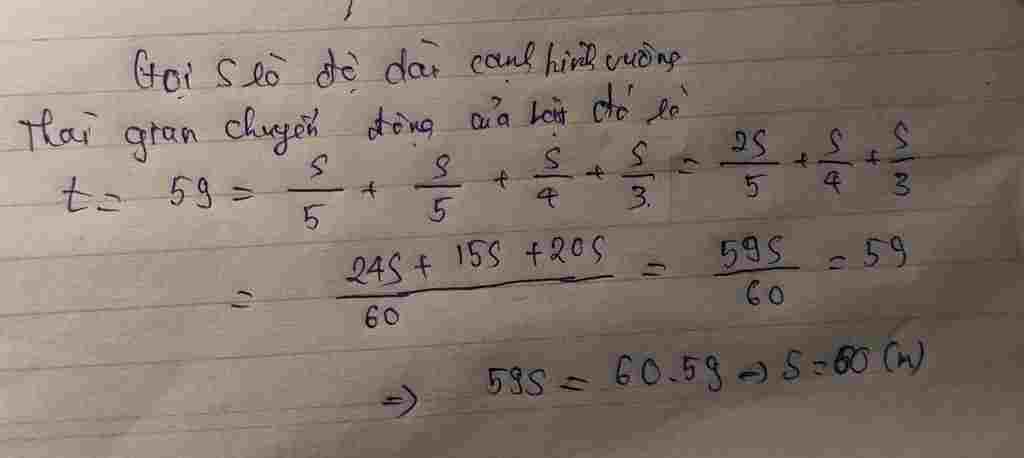 Gọi S là độ dài cạnh hình vuông
Thời gian chuyển động của vật đó là
t = 59 = S/5 + S/5 + S/4 + S/3 = 2S/5 + S/4 + S/3
= (24S + 15S + 20S)/60 = 59S/60 = 59
=> 59S = 60.59 => S = 60 (m)